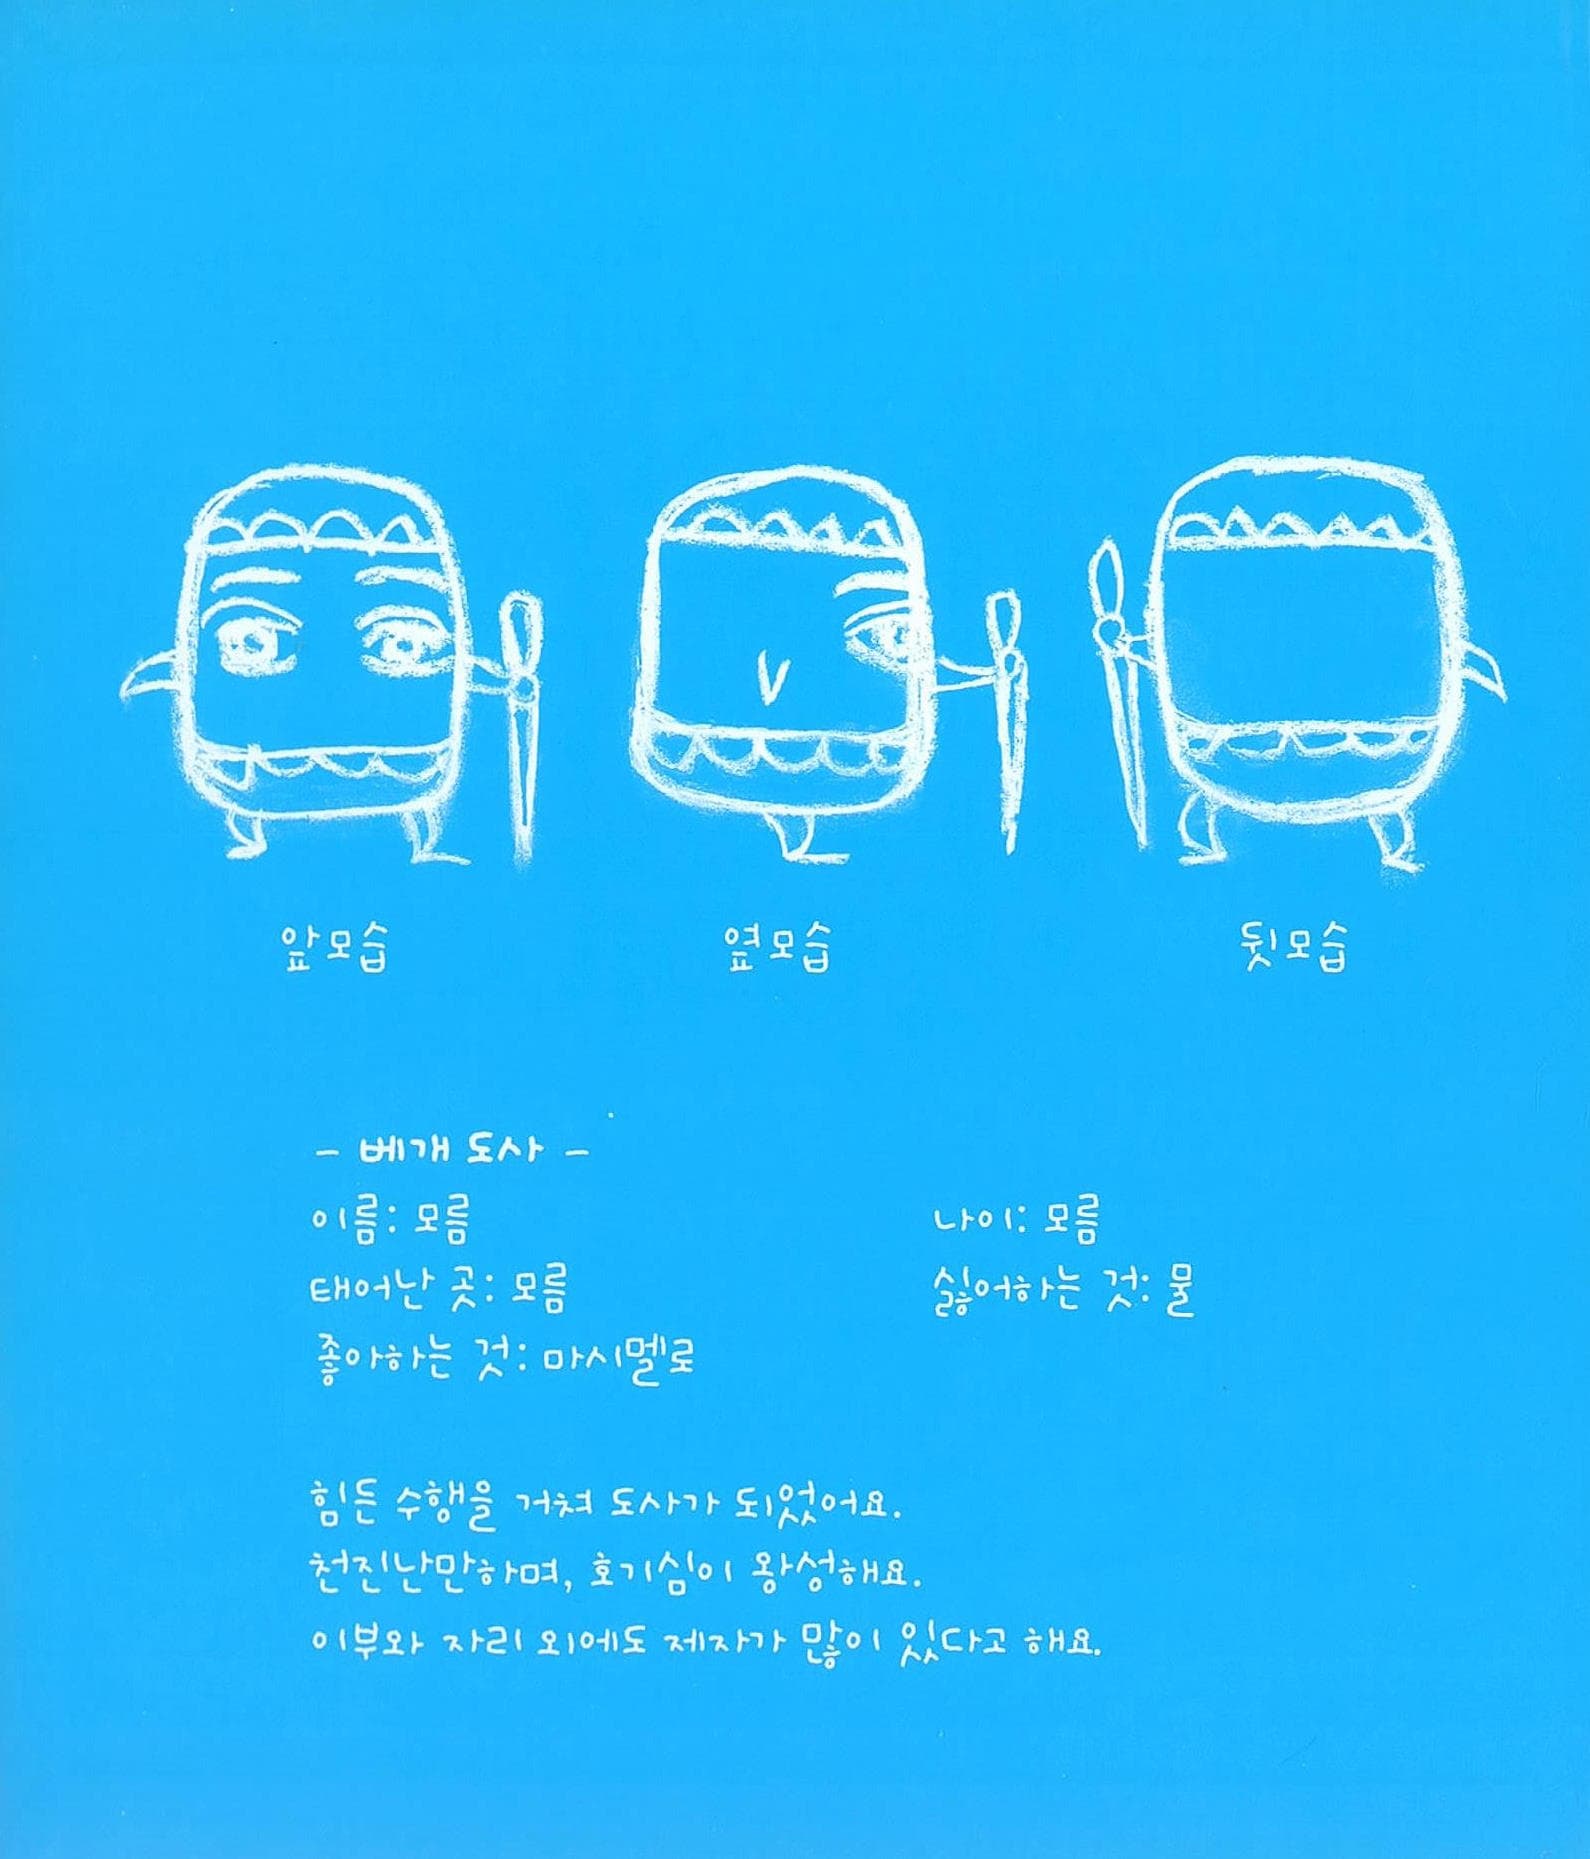 앞모습 옆모습 뒷모습
- 베개 도사 -
이름: 모름 나이: 모름
태어난 곳: 모름 싫어하는 것: 물
좋아하는 것: 마시멜로
힘든 수행을 거쳐 도사가 되었어요.
천진난만하며, 호기심이 왕성해요.
이부와 자리 외에도 제자가 많이 있다고 해요.